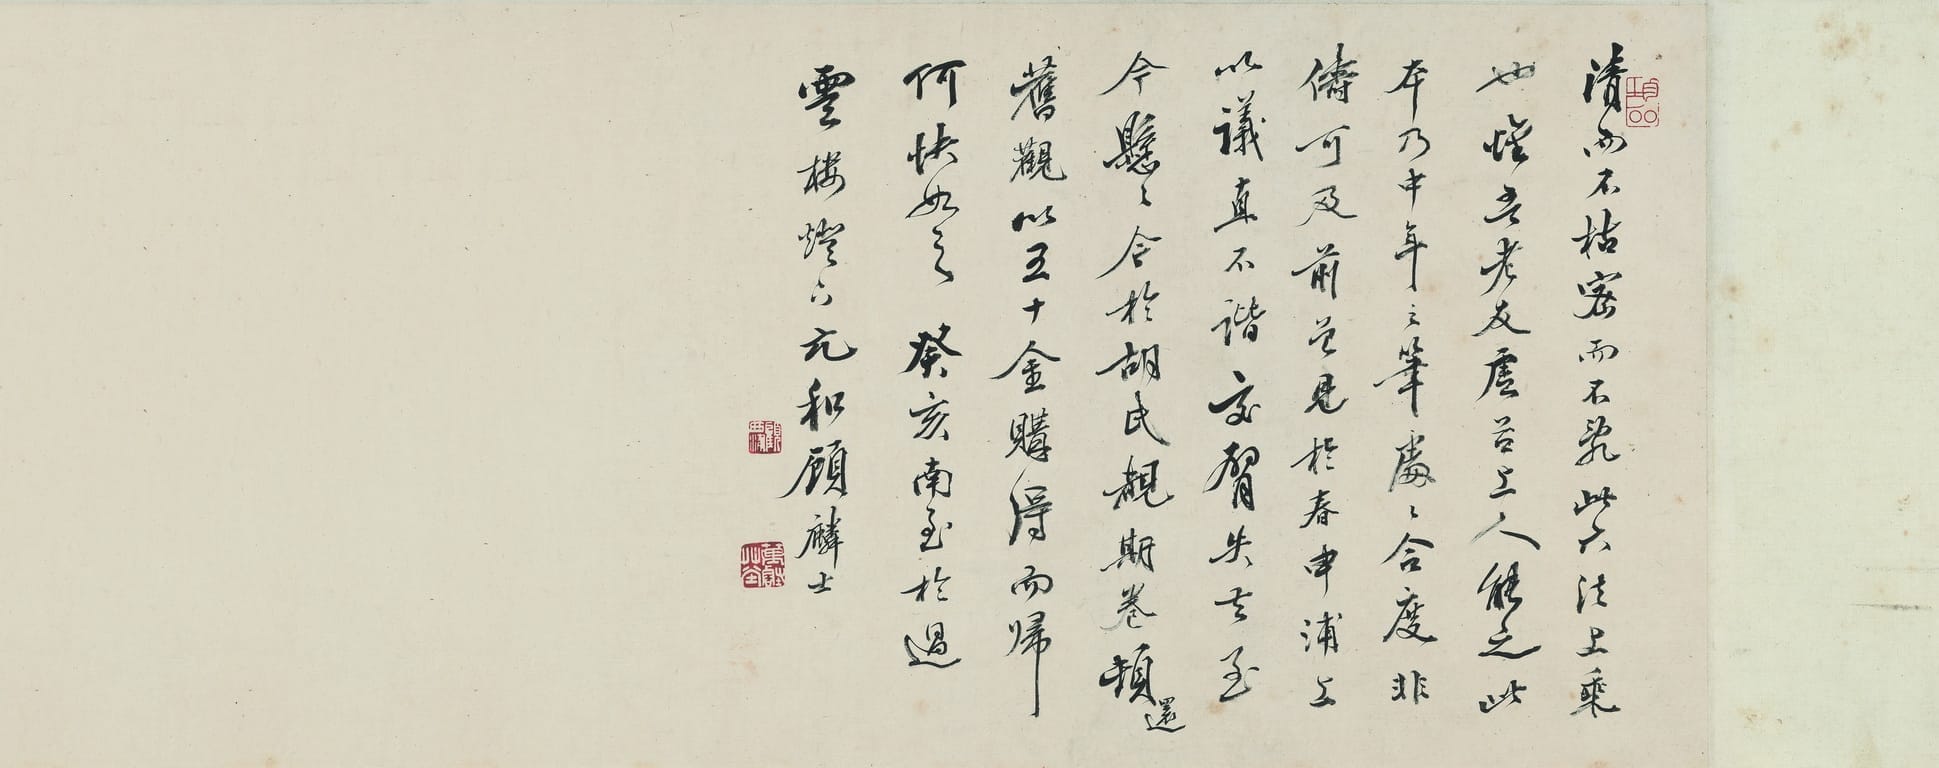 清而不枯密而不亂此六法上乘
也惟吾老友虗谷上人能之此
本乃中年之筆處〻合度非
儔可及前曾見於春申浦上
以議直不諧交臂失去至
今懸〻今於胡氏覩期卷頓還
舊觀以五十金購得而歸
何快如之 癸亥南至於過
雲樓燈下元和顧麟士